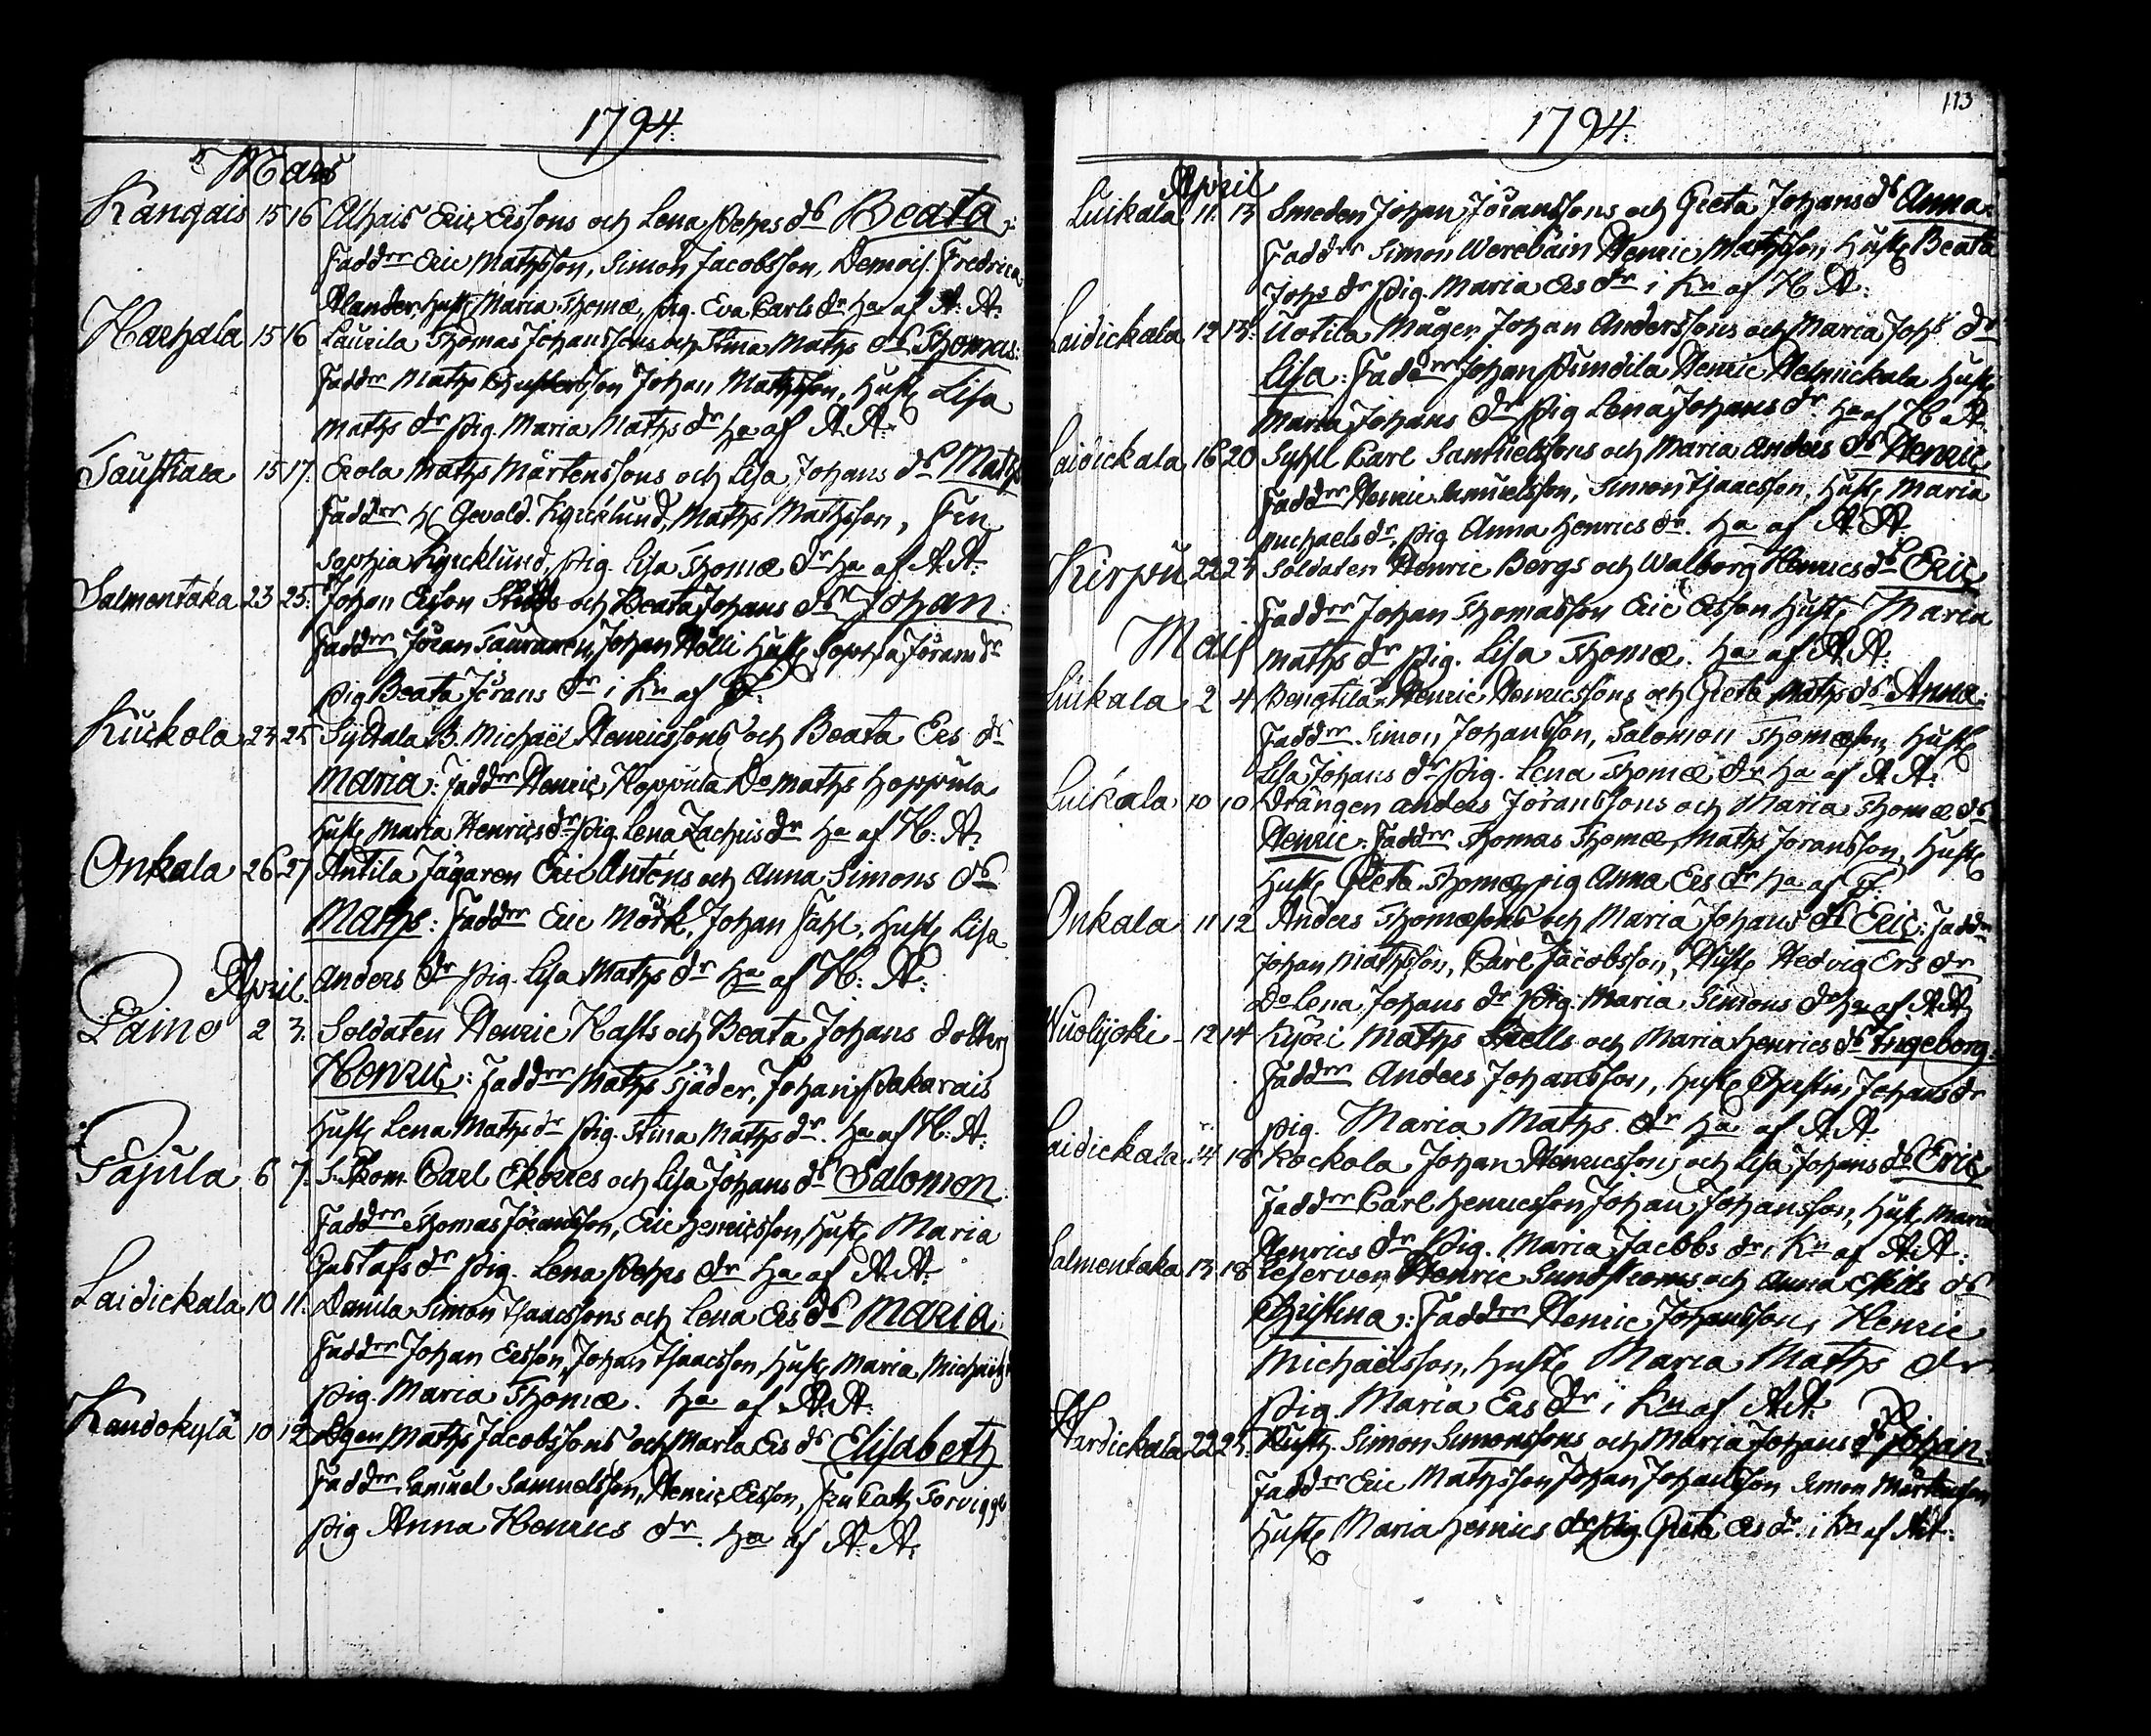 1794.
Mars
Kangais 15 16 Alhais Eric Erssons och Lena Pehrs ds Beata:
Fadd:rr Eric Mathsson, Simon Jacobsson, Demois. Fredrica
Alander, Hust. Maria Thomæ, Pig. Eva Carls dr ha af A: A:
Harhala 15 16 Laurila Thomas Johanssons och Stina Maths ds Thomas:
Faddrr Maths Johan Mathsson, Hust. Lisa
Maths dr Pig. Maria Maths dr ha af A. A:
Taustiala 15 17. Erola Maths Mårtenssons och Lisa Johans ds Maths
Faddrr H. Gevald. Kyrklund, Maths Mathsson, Fru
Sophia Kyrcklund, Pig. Lisa Thomæ dr ha af A. A:
Salmentaka 23 25: Johan Ersson och Beata Johans ds Johan:
Faddrr Jöran Tauranen, Johan Hölli Hust. Sophia Jörans dr
Pig Beata Jörans dr i Kn af F:
Kuckola 24 25 B. Michaël Henricssons och Beata Ers dr
Maria: Faddrr Henric Hoppula Do Maths Hoppula
Hust. Maria Henrics dr Pig. Lena Zachris dr ha af H: A:
Onkala 26 27 Antila Jägaren Eric Antons och Anna Simons ds
Maths: Faddrr Eric Mörk, Johan Fahl, Hust. Lisa
Anders dr Pig. Lisa Maths dr ha af H: A:
April.
Laine 2 3. Soldaten Henric Hasts och Beata Johans dotters
Henric: Faddrr Maths Fjäder, Johan Pakarais
Hust. Lena Maths dr Pig. Stina Maths dr. ha af H: A:
Pajula 6 7. S. Skom. Carl Ekorres och Lisa Johans ds Salomon
Faddrr Thomas Jöransson, Eric Henricsson, Hust. Maria
Gustafs dr Pig. Lena Pehrs dr ha af A. A:
Laidickala 10 11. Danila Simon Isaacssons och Lena Ers ds Maria:
Faddrr Johan Ersson, Johan Isaacsson, Hust. Maria Michaels
Pig. Maria Thomæ. ha af A. A:
Kandokylä 10 12 Ägen Maths Jacobssons och Maria Ers ds Elisabeth
Faddrr Samuel Samuelsson, Henric Ersson, Fru Cath.
Pig Anna Henrics dr. ha af A. A:
113
1794.
April
Luikala 11. 13 Smeden Johan Jöranssons och Greta Johans ds Anna:
Faddrr Simon Henric Mathsson, Hust. Beata
Johs dr Pig. Maria Ers dr i Kn af H A:
Laidickala 12 13: Uotila Mågen Johan Anderssons och Maria Johs dr
Lisa: Faddrr Johan Pundila Henric Hust.
Maria Johans dr Pig Lena Johans dr ha af H A:
Laidickala 16 20 Carl Samuelssons och Maria Anders ds Henric
Faddrr Henric Samuelsson, Simon Isaacsson, Hust. Maria
Michaels dr, Pig Anna Henrics dr. ha af A A
Kirpu 22 24 Soldaten Henric Bergs och Walborg Henrics ds Eric
Faddrr Johan Thomasson Eric Ersson Hust. Maria
Maths dr Pig. Lisa Thomæ. ha af A A:
Maij
Luikala 2 4 Bengtila Henric Henricssons och Greta Maths ds Anna:
Faddrr Simon Johansson, Salomon Thomæson Hust.
Lisa Johans dr Pig. Lena Thomæ dr ha af A. A:
Luikala 10 10 Drängen Anders Jöranssons och Maria Thomæ ds
Henric: Faddrr Thomas Thomæ, Maths Jöransson, Hust.
Hust. Greta Thomæ, Pig Anna Ers dr ha af F.
Onkala 11 12 Anders Thomæsons och Maria Johans ds Eric: Faddrr
Johan Mathsson, Carl Jacobsson, Hust. Hedvig Ers dr
Do Lena Johans dr Pig. Maria Simons dr ha af A. A
Wuolijoki 12 14 Kyöri Maths och Maria Henrics ds Ingeborg:
Faddrr Anders Johansson, Hust. Christin Johans dr
Pig. Maria Maths dr ha af A. A:
Laidickala 14 18 Kockola Johan Henricssons och Lisa Johans ds Eric
Faddrr Carl Henricsson Johan Johansson, Hust. Maria
Henrics dr Pig. Maria Jacobs dr i Kn af A. A:
Salmentaka 13 18 Reserven Henric Sundströms och Anna Eskils ds
Christina: Faddrr Henric Johansson, Henric
Michaëlsson, Hust. Maria Maths dr
Pig. Maria Ers dr i Kn af A. A:
22 24. Simon Simonssons och Maria Johans ds Johan:
Faddrr Eric Mathsson Johan Johansson Simon Mårtensson
Hust. Maria Henrics dr Pig. Greta Ers dr i Kn af A. A: